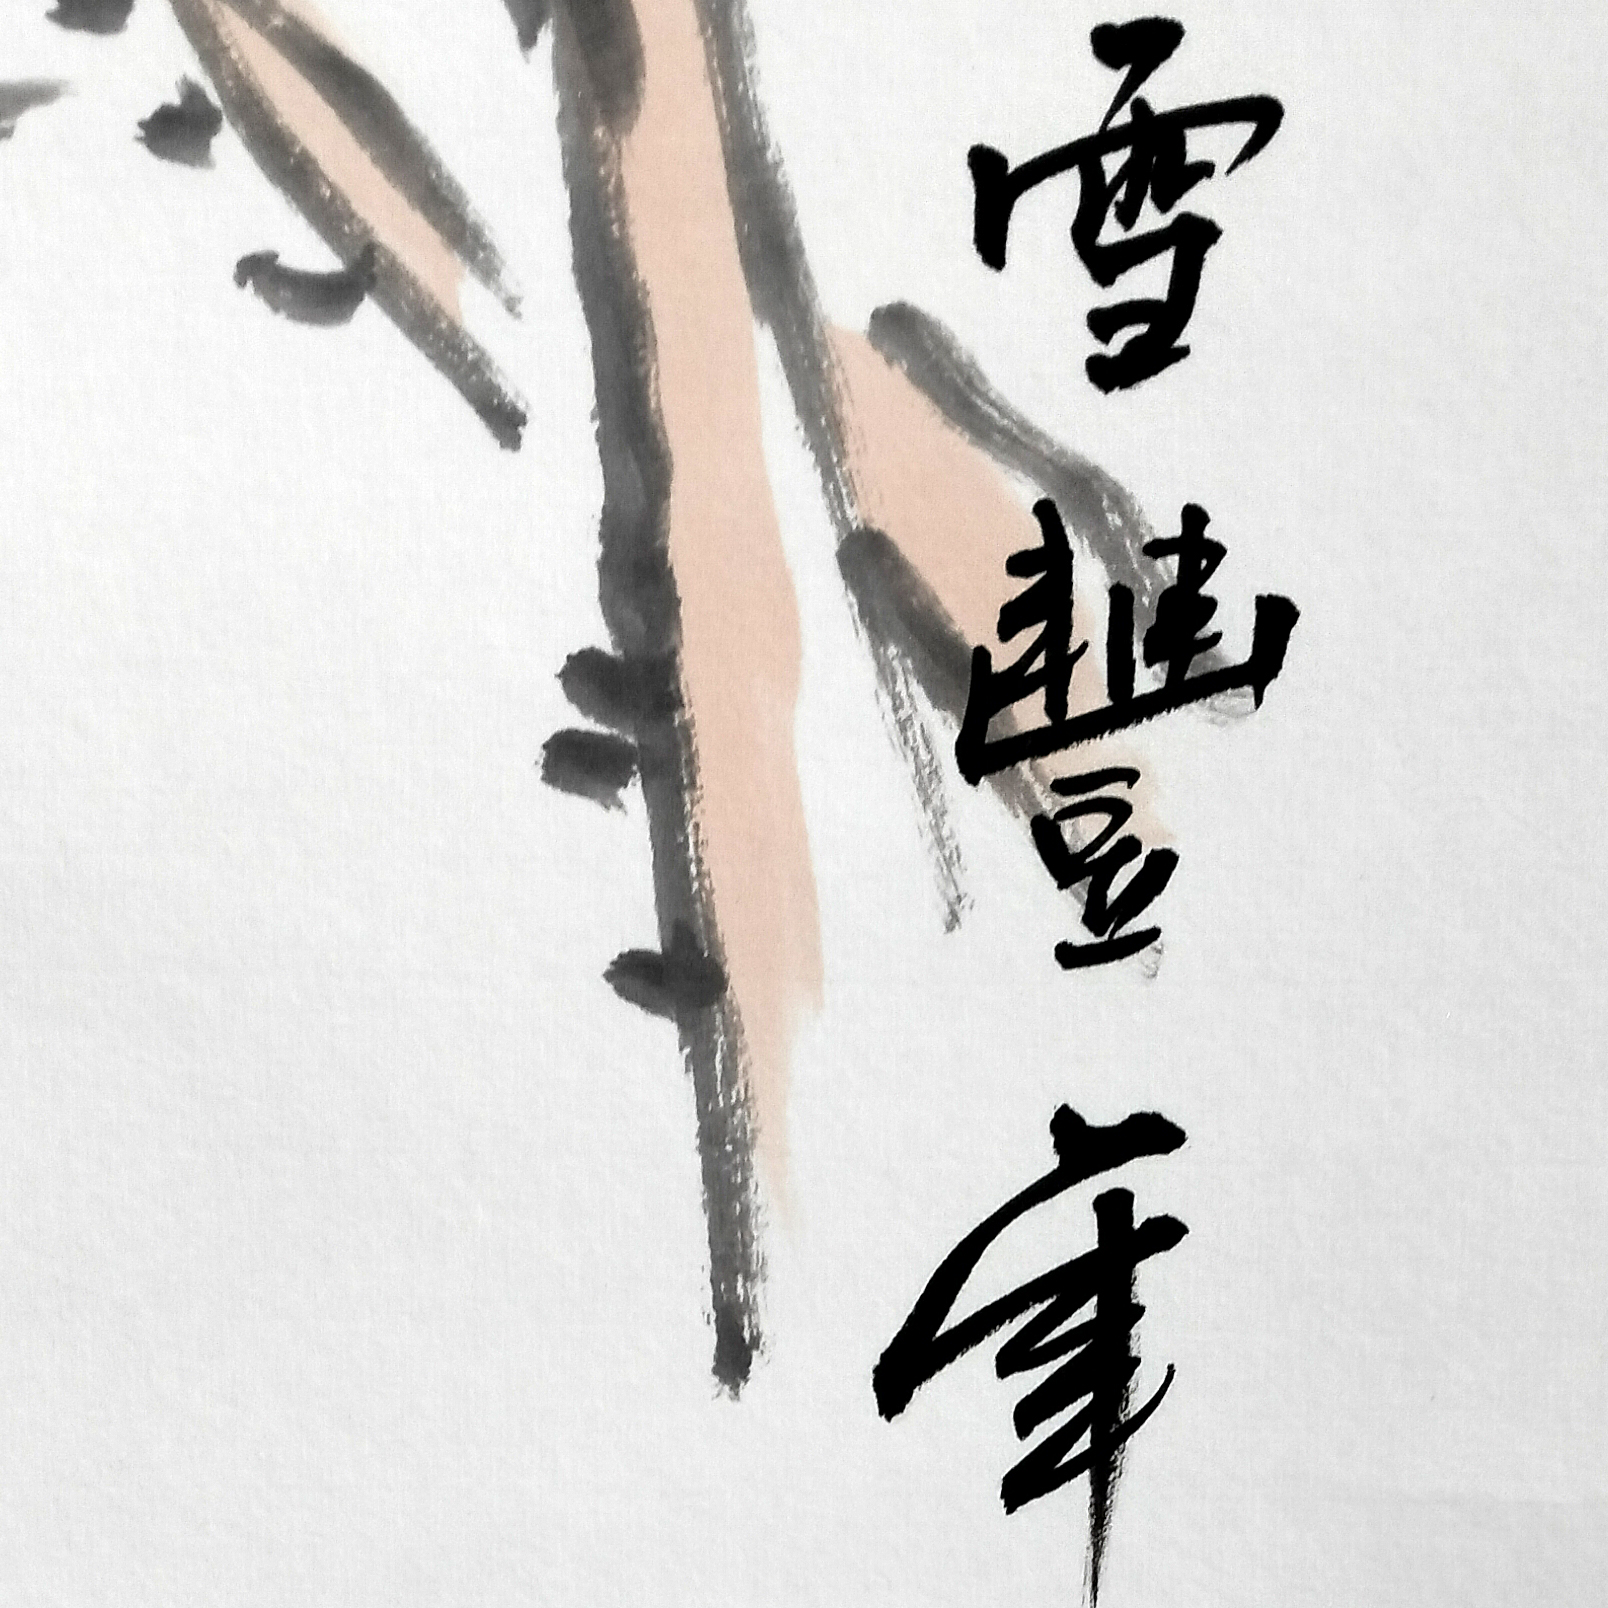 雪豐年